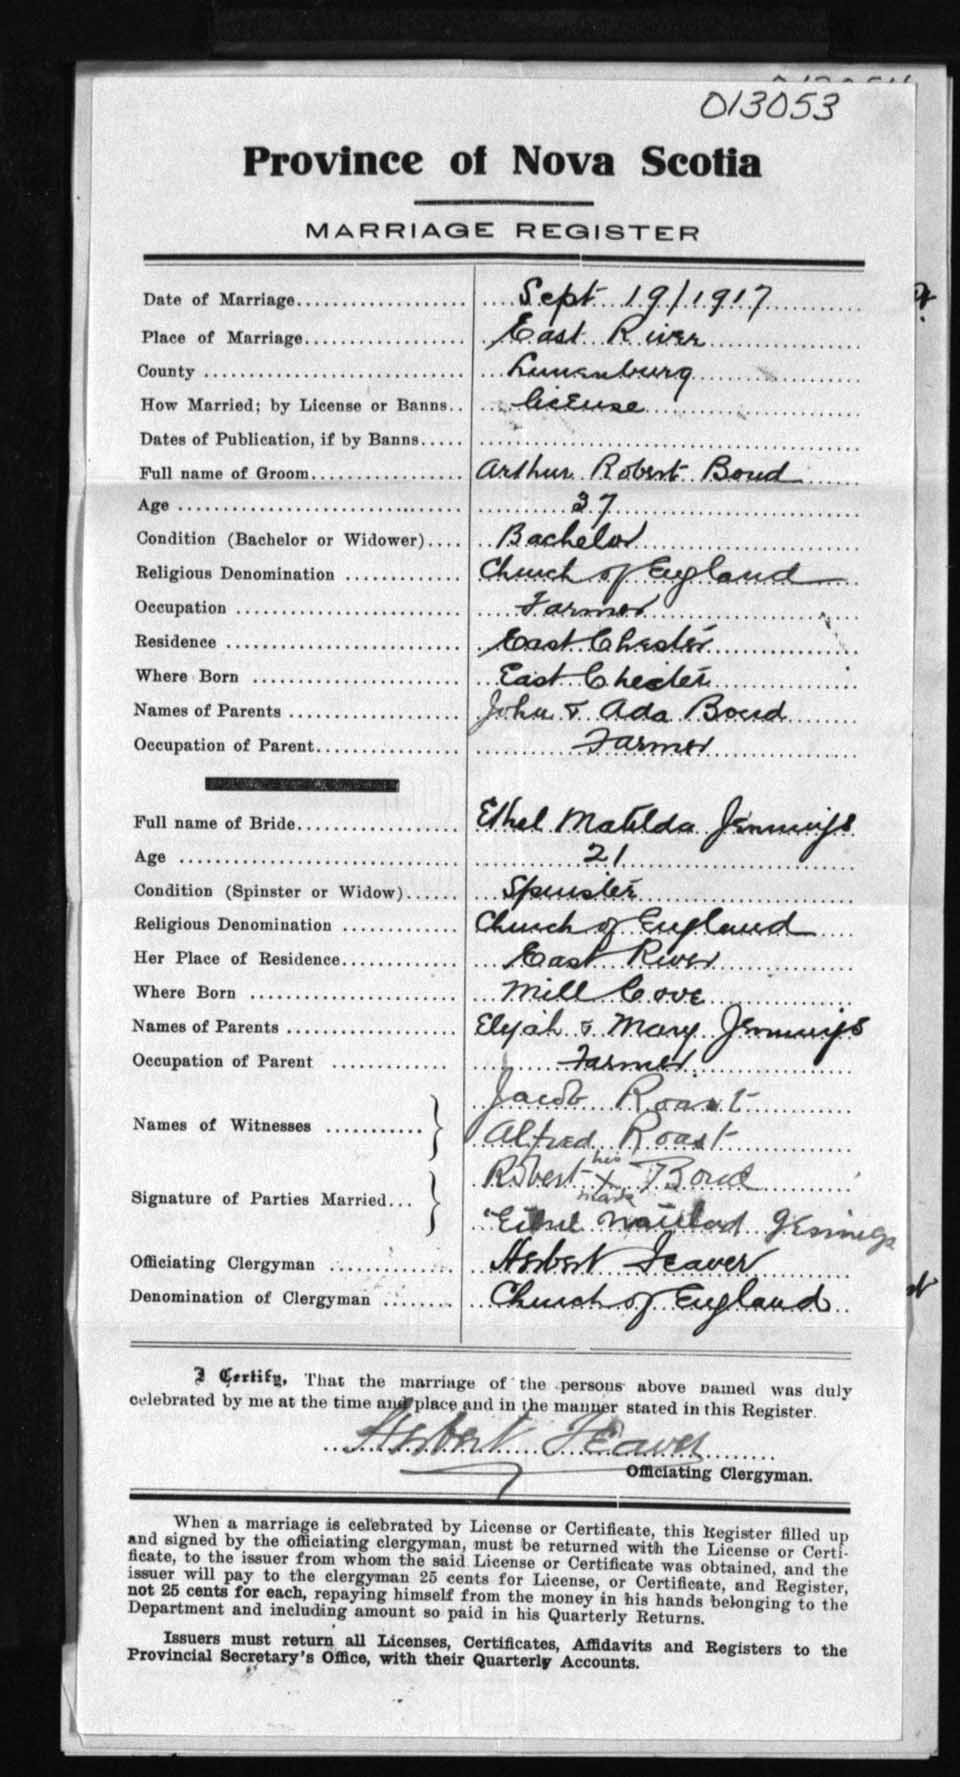 013053
Province of Nova Scotia
MARRIAGE REGISTER
Date of Marriage................... Sept 19/1917
Place of Marriage.................. East River
County ............................ Lunenburg
How Married; by License or Banns.. license
Dates of Publication, if by Banns.....
Full name of Groom................. Arthur Robert Bond
Age ............................... 37
Condition (Bachelor or Widower).... Bachelor
Religious Denomination ............ Church of England
Occupation ........................ Farmer
Residence ......................... East Chester
Where Born ........................ East Chester
Names of Parents .................. John & Ada Bond
Occupation of Parent............... Farmer
Full name of Bride................. Ethel Matilda Jennings
Age ............................... 21
Condition (Spinster or Widow)...... Spinster
Religious Denomination ............ Church of England
Her Place of Residence............. East River
Where Born ........................ Mill Cove
Names of Parents .................. Elijah & Mary Jennings
Occupation of Parent .............. Farmer
Jacob Roast
Names of Witnesses ...........
Alfred Roast
Robert his X mark Bond
Signature of Parties Married...
Jennings
Officiating Clergyman ............. Herbert Feaver
Denomination of Clergyman ........ Church of England
I Certify, That the marriage of the persons above named was duly
celebrated by me at the time and place and in the manner stated in this Register.
Herbert Feaver
Officiating Clergyman.
When a marriage is celebrated by License or Certificate, this Register filled up
and signed by the officiating clergyman, must be returned with the License or Certi-
ficate, to the issuer from whom the said License or Certificate was obtained, and the
issuer will pay to the clergyman 25 cents for License, or Certificate, and Register,
not 25 cents for each, repaying himself from the money in his hands belonging to the
Department and including amount so paid in his Quarterly Returns.
Issuers must return all Licenses, Certificates, Affidavits and Registers to the
Provincial Secretary's Office, with their Quarterly Accounts.